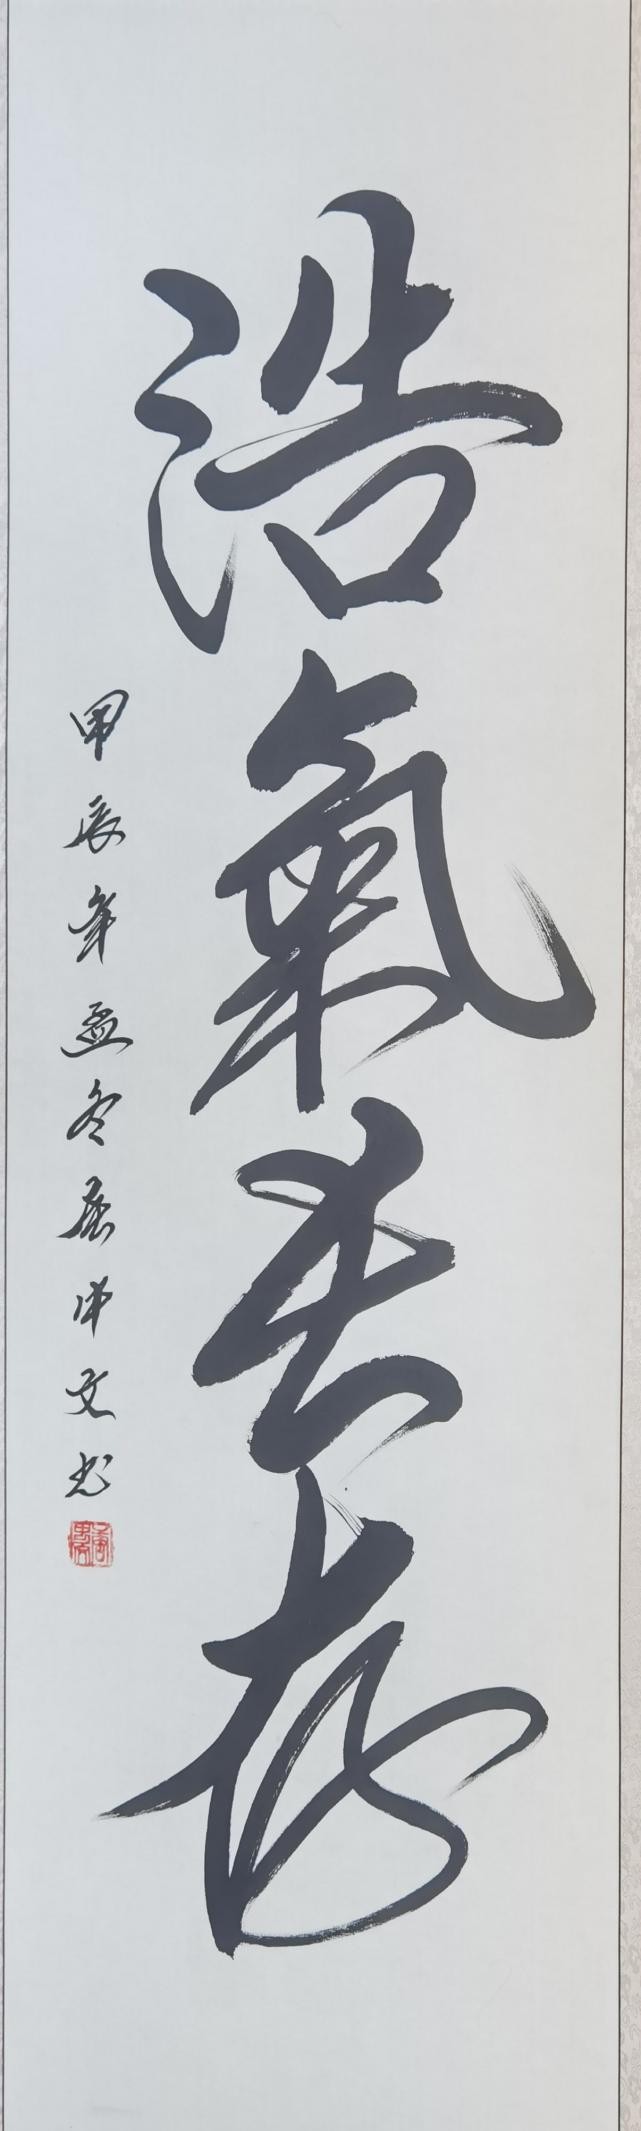 浩氣長存
甲辰年孟冬屈中文书